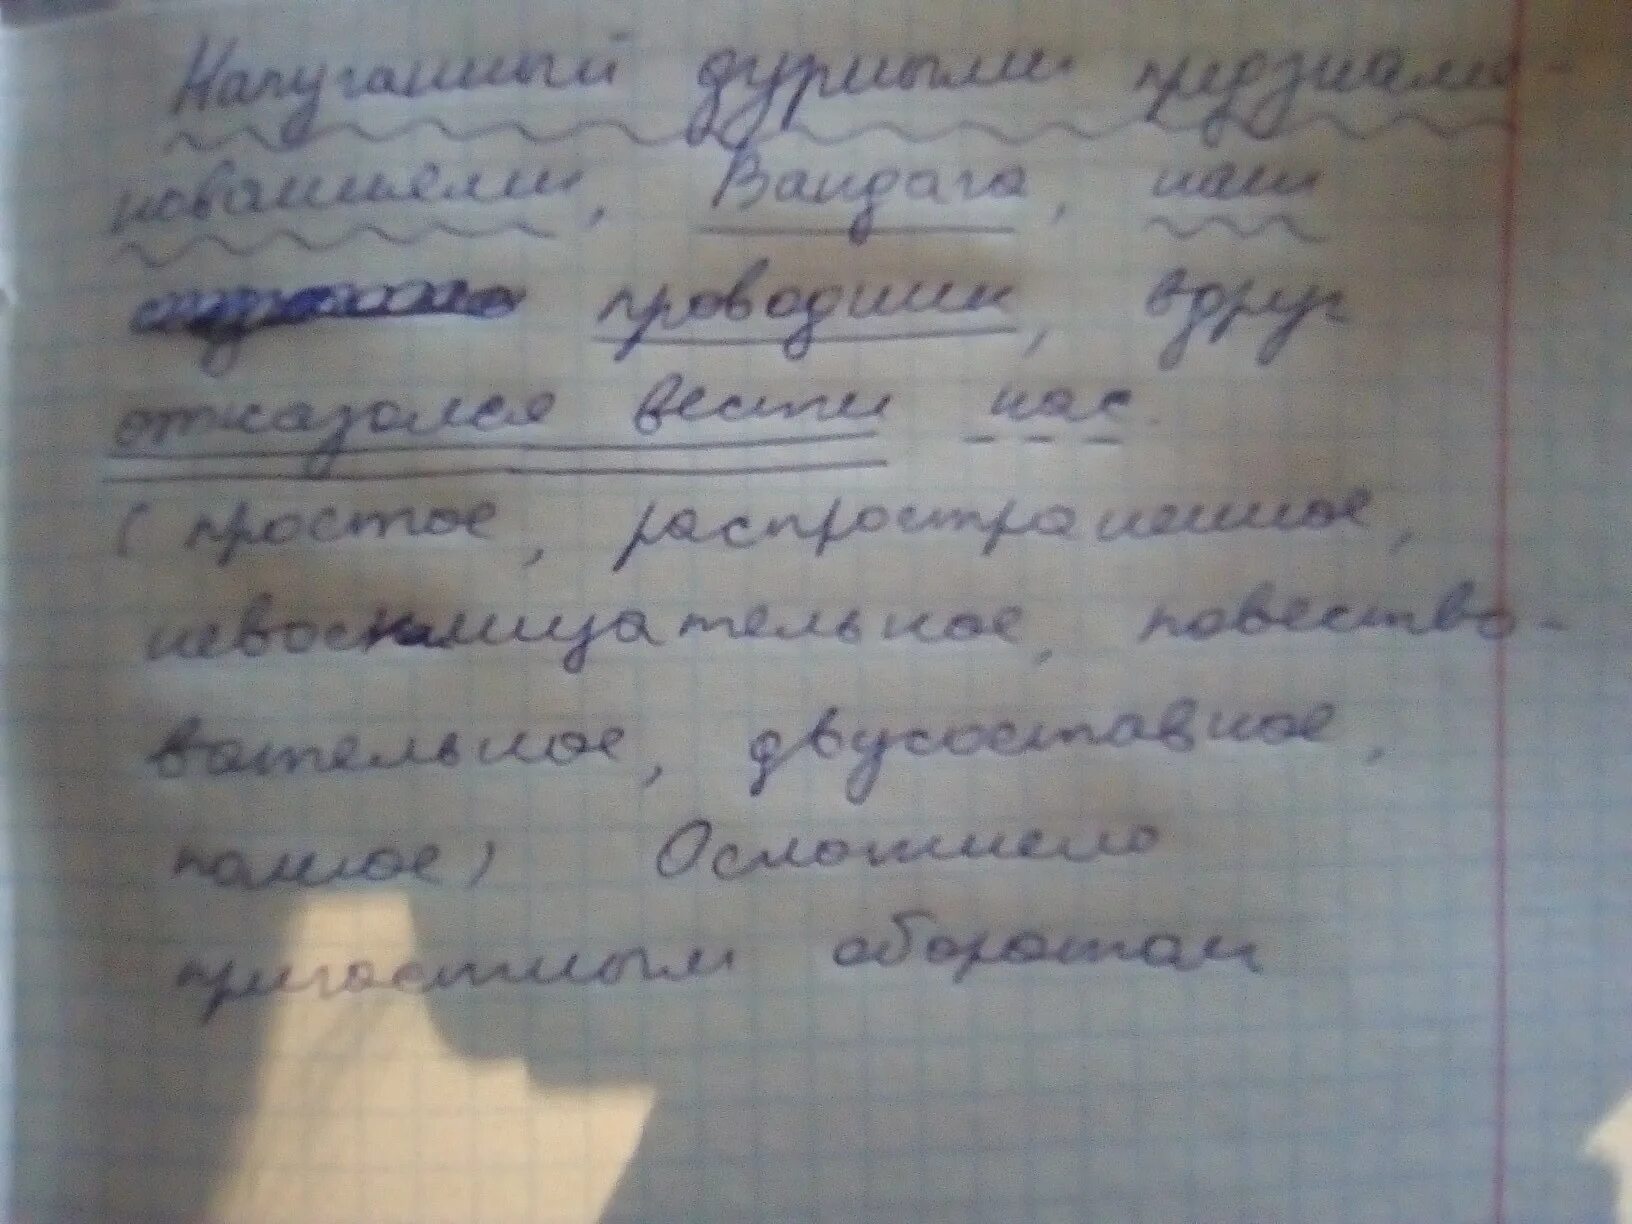 Напуганный дурными предзнаме-
нованиями, Вандага, наш
проводник, вдруг
отказался вести нас.
(простое, распространенное,
невосклицательное, повество-
вательное, двусоставное,
полное) Осложнено
причастным оборотом